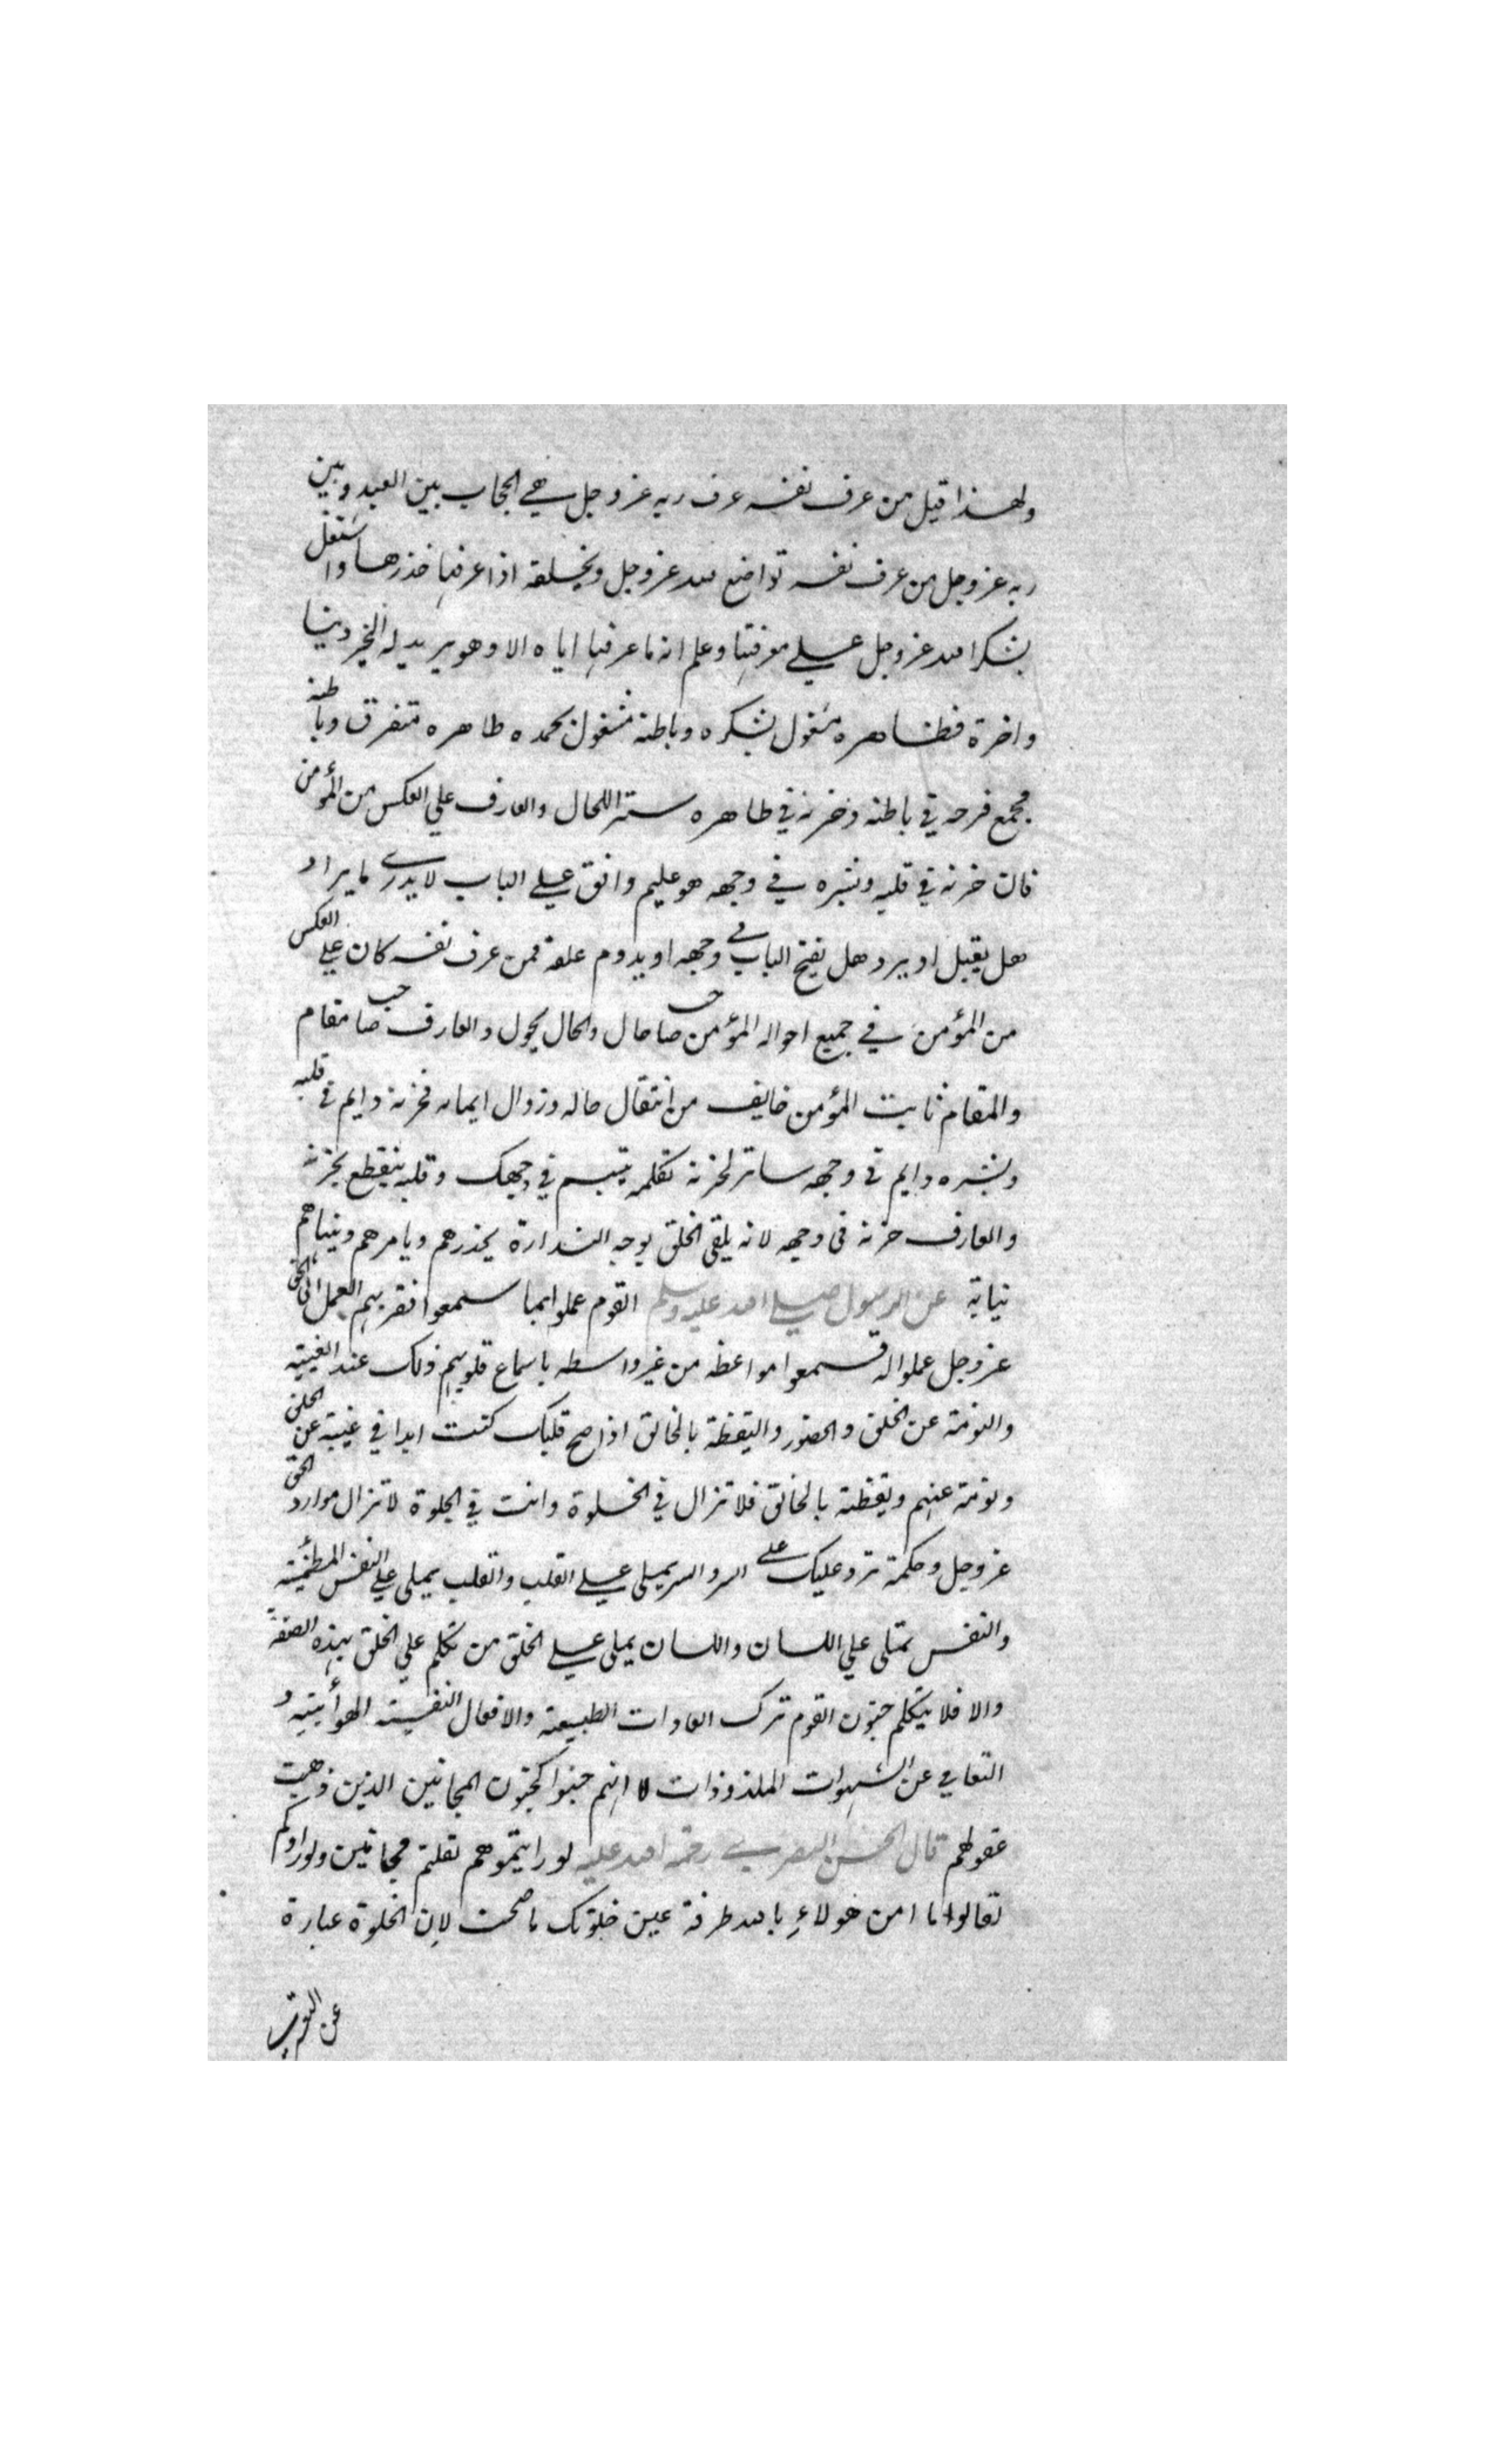 ولهذا قيل من عرف نفسه عرف ربه عز وجل هي الحجاب بين العبد وبين
ربه عز وجل من عرف نفسه تواضع لله عز وجل ولخلقه اذا عرفها حذرها واشتغل
بشكر الله عز وجل على معرفتها وعلم انه ما عرفها اياه الا وهو يريد له الخير دنيا
واخرة فظاهره مشغول بشكره وباطنه مشغول بحمده ظاهره متفرق وباطنه
مجمع فرحه في باطنه وحزنه في ظاهره ستر اللحال والعارف على العكس من المؤمن
فان حزنه في قلبه وبشره في وجهه هو عليم واقف على الباب لا يدري ما يراد
هل يقبل او يرد هل يفتح الباب في وجهه او يدوم غلقه فمن عرف نفسه كان على العكس
من المؤمن في جميع احواله المؤمن صاحب حال والحال يحول والعارف صاحب مقام
والمقام ثابت المؤمن خايف من انتقال حاله وزوال ايمانه فحزنه دايم في قلبه
وبشره دايم في وجهه ساتر لحزنه تكلمه يتبسم في وجهك وقلبه ينقطع بحزنه
والعارف حزنه في وجهه لانه يلقى الخلق بوجه النذارة يحذرهم ويامرهم وينهاهم
نيابة عن الرسول صلى الله عليه وسلم القوم عملوا بما سمعوا فقربهم العمل الى الحق
عز وجل عملوا له فسمعوا مواعظه من غير واسطه باسماع قلوبهم ذلك عند الغيبة
والنومة عن الخلق والحضور واليقظة بالخالق اذا صح قلبك كنت ابدا في غيبة عن الخلق
ونومة عنهم ويقظة بالخالق فلا تزال في الخلوة وانت في الجلوة لا تزال موارد الحق
عز وجل وحكمة ترد عليك على السر والسر يملي على القلب والقلب يملي على النفس المطمئنة
والنفس تملى على اللسان واللسان يملى على الخلق من تكلم على الخلق بهذه الصفة
والا فلا يتكلم جنون القوم ترك العادات الطبيعة والافعال النفسية الهوائية و
التعامي عن الشهوات الملذوذات لا انهم جنوا كجنون المجانين الذين ذهبت
عقولهم قال الحسن البصري رحمة الله عليه لو رايتموهم لقلتم مجانين ولو راوكم
لقالوا ما امن هولاء بالله طرفة عين خلوتك ما صحت لان الخلوة عبارة